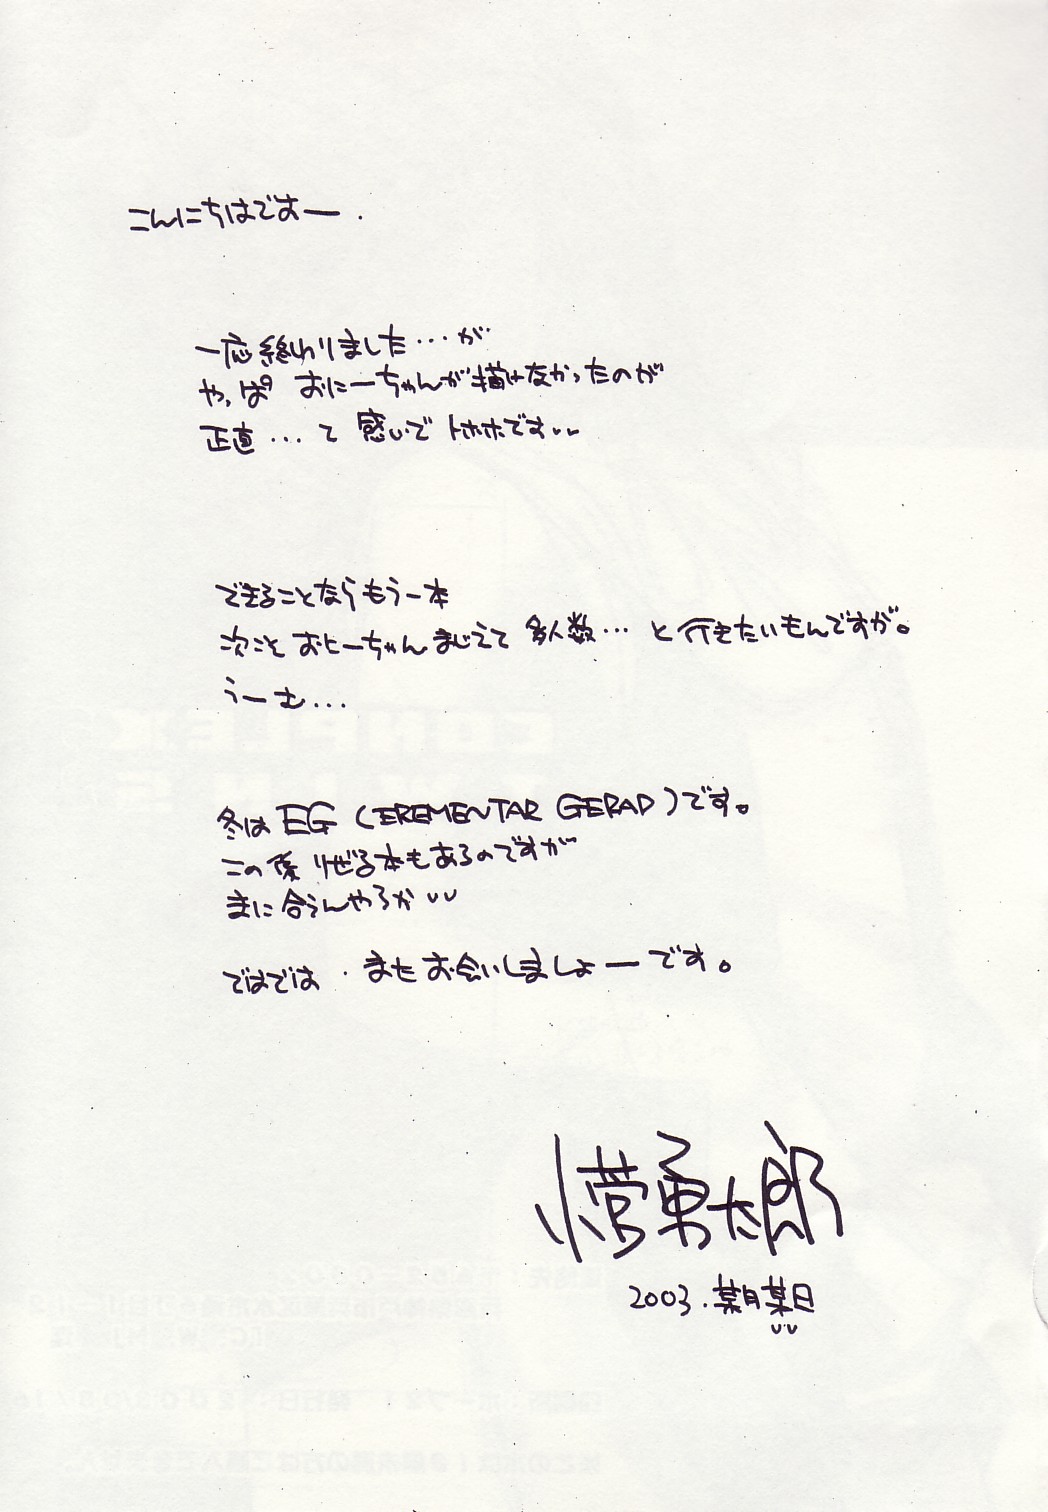 こんにちはですー.
一応終わりました…が
やっぱ おにーちゃんが描けなかったのが
正直…て 感じで トホホです
できることならもう一本
次こそ おにーちゃんまじえて 多人数…と行きたいもんですが。
うーむ…
冬は EG (EREMENTAR GERAD)です。
この後 りぜる本もあるのですが
まに合うんやろか
ではでは・またお会いしましょーです。
小菅勇太郎
2003.某月某日
CONPLEX